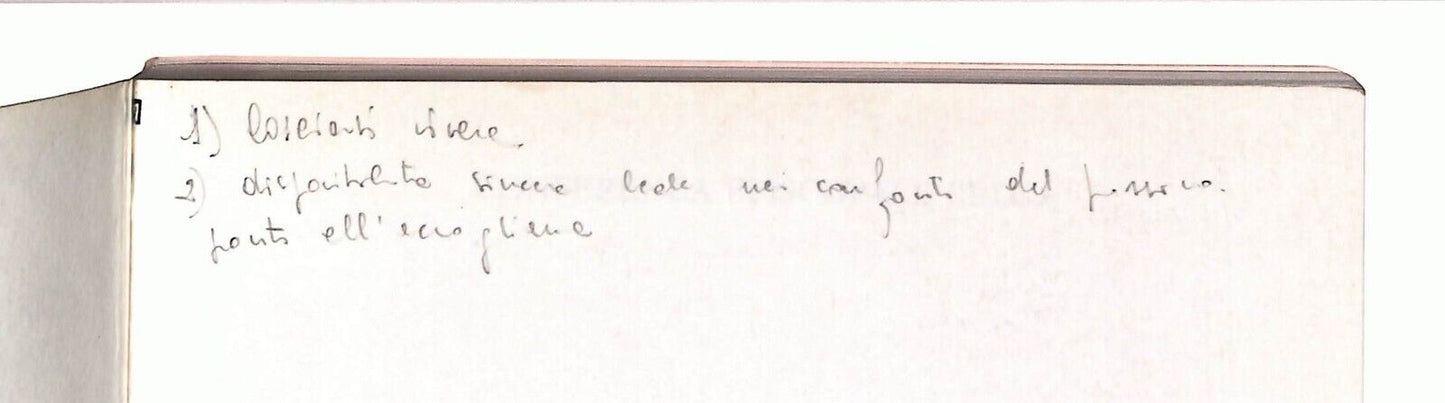 1) lasciarsi vivere.
2) disponibilità sincera leale nei confronti del
pronti all'accogliere